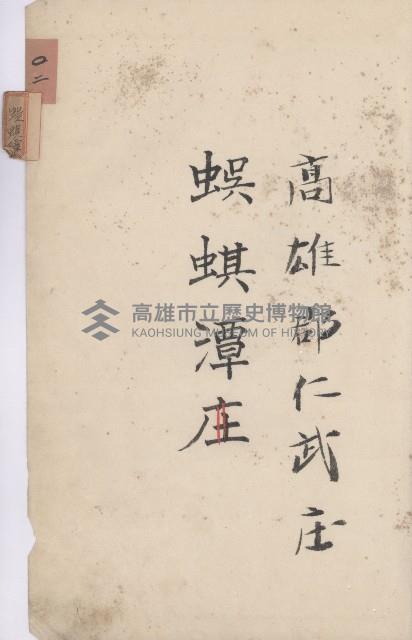 高雄郡仁武庄
蜈蜞潭庄
〇二
高雄市立歷史博物館
KAOHSIUNG MUSEUM OF HISTORY